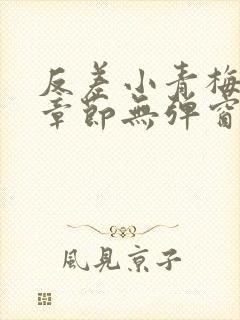 反差小青梅
章節無彈窗
風見京子